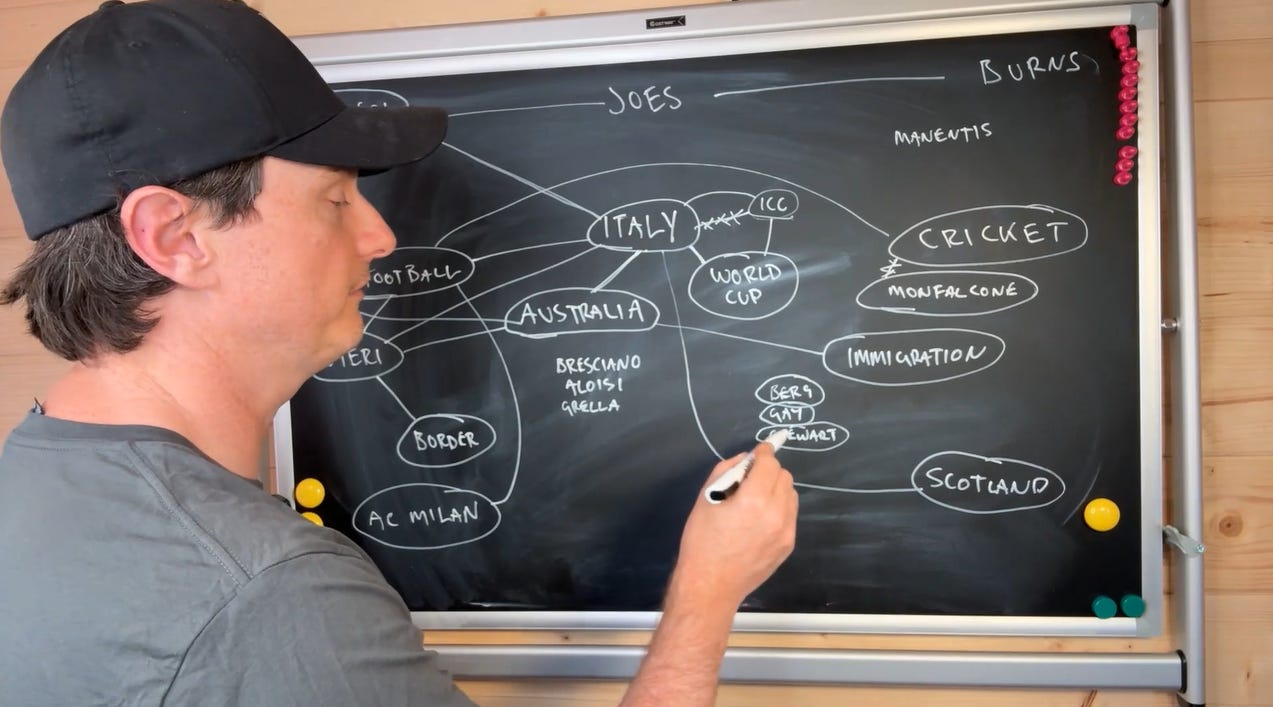 BURNS
JOES
MANENTIS
ICC
ITALY
CRICKET
FOOTBALL
WORLD
CUP
MONFALCONE
AUSTRALIA
IMMIGRATION
BRESCIANO
ALOISI
GRELLA
BERG
GAY
STEWART
BORDER
SCOTLAND
AC MILAN